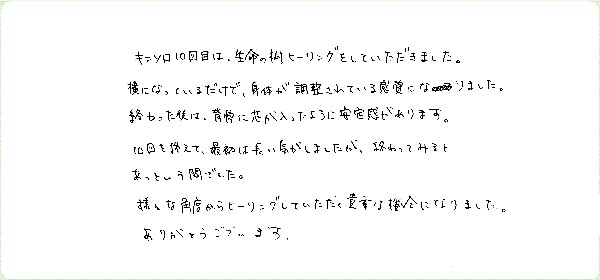 キニソロ10回目は、生命の樹ヒーリングをしていただきました。
横になっているだけで、身体が調整されている感覚になりました。
終わった後は、背骨に芯が入ったように安定感があります。
10回を終えて、最初は長い気がしましたが、終わってみると
あっという間でした。
様々な角度からヒーリングしていただく貴重な機会になりました。
ありがとうございます。